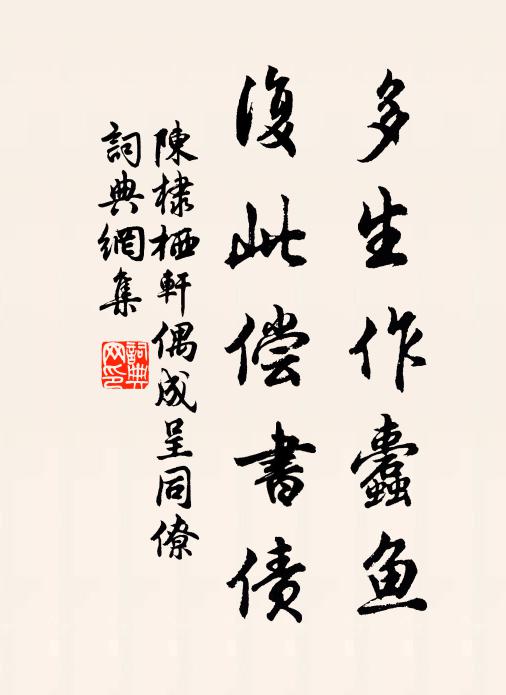 多生作蠹鱼
復此偿書债
陳棣栖軒偶成呈同僚
詞典網集
詞典网印